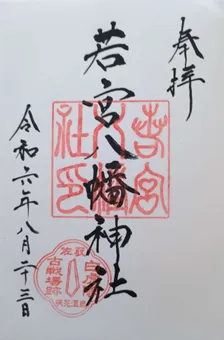 奉拝
若宮八幡神社
令和六年八月二十三日
古戦場跡